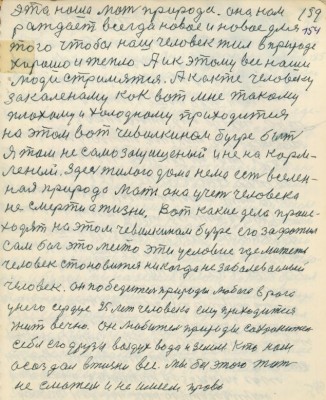 эта наша мат природа. она нам 159
раждает всегда новое и новое для 154
того чтобы наш человек жил в природе
хорошо и тепло. А и к этому все наши
люди стримлятся. А как те человеку
закаленому как вот мне такому
плохому и холодному приходится
на этом вот чевилкином бугре быт
Я там не само защищеный и не на карм-
леный. Здес жилого дома нема ест вселен-
ная природа мать она учет человека
не смерти а жизни. Вот какие дела проис-
ходят на этом чевилкином бугре его задрожил
сам бог это место эти условие где
человек становится никогда не заболеваемый
человек. он победител природы
у него сердце 25 лет человека ему приходится
жит вечно. он любител природы сохранител
себя его друзя воздух вода и земля. Кто нам
а создал в жизни все. мы без этого жит
не сможем и не имеем право